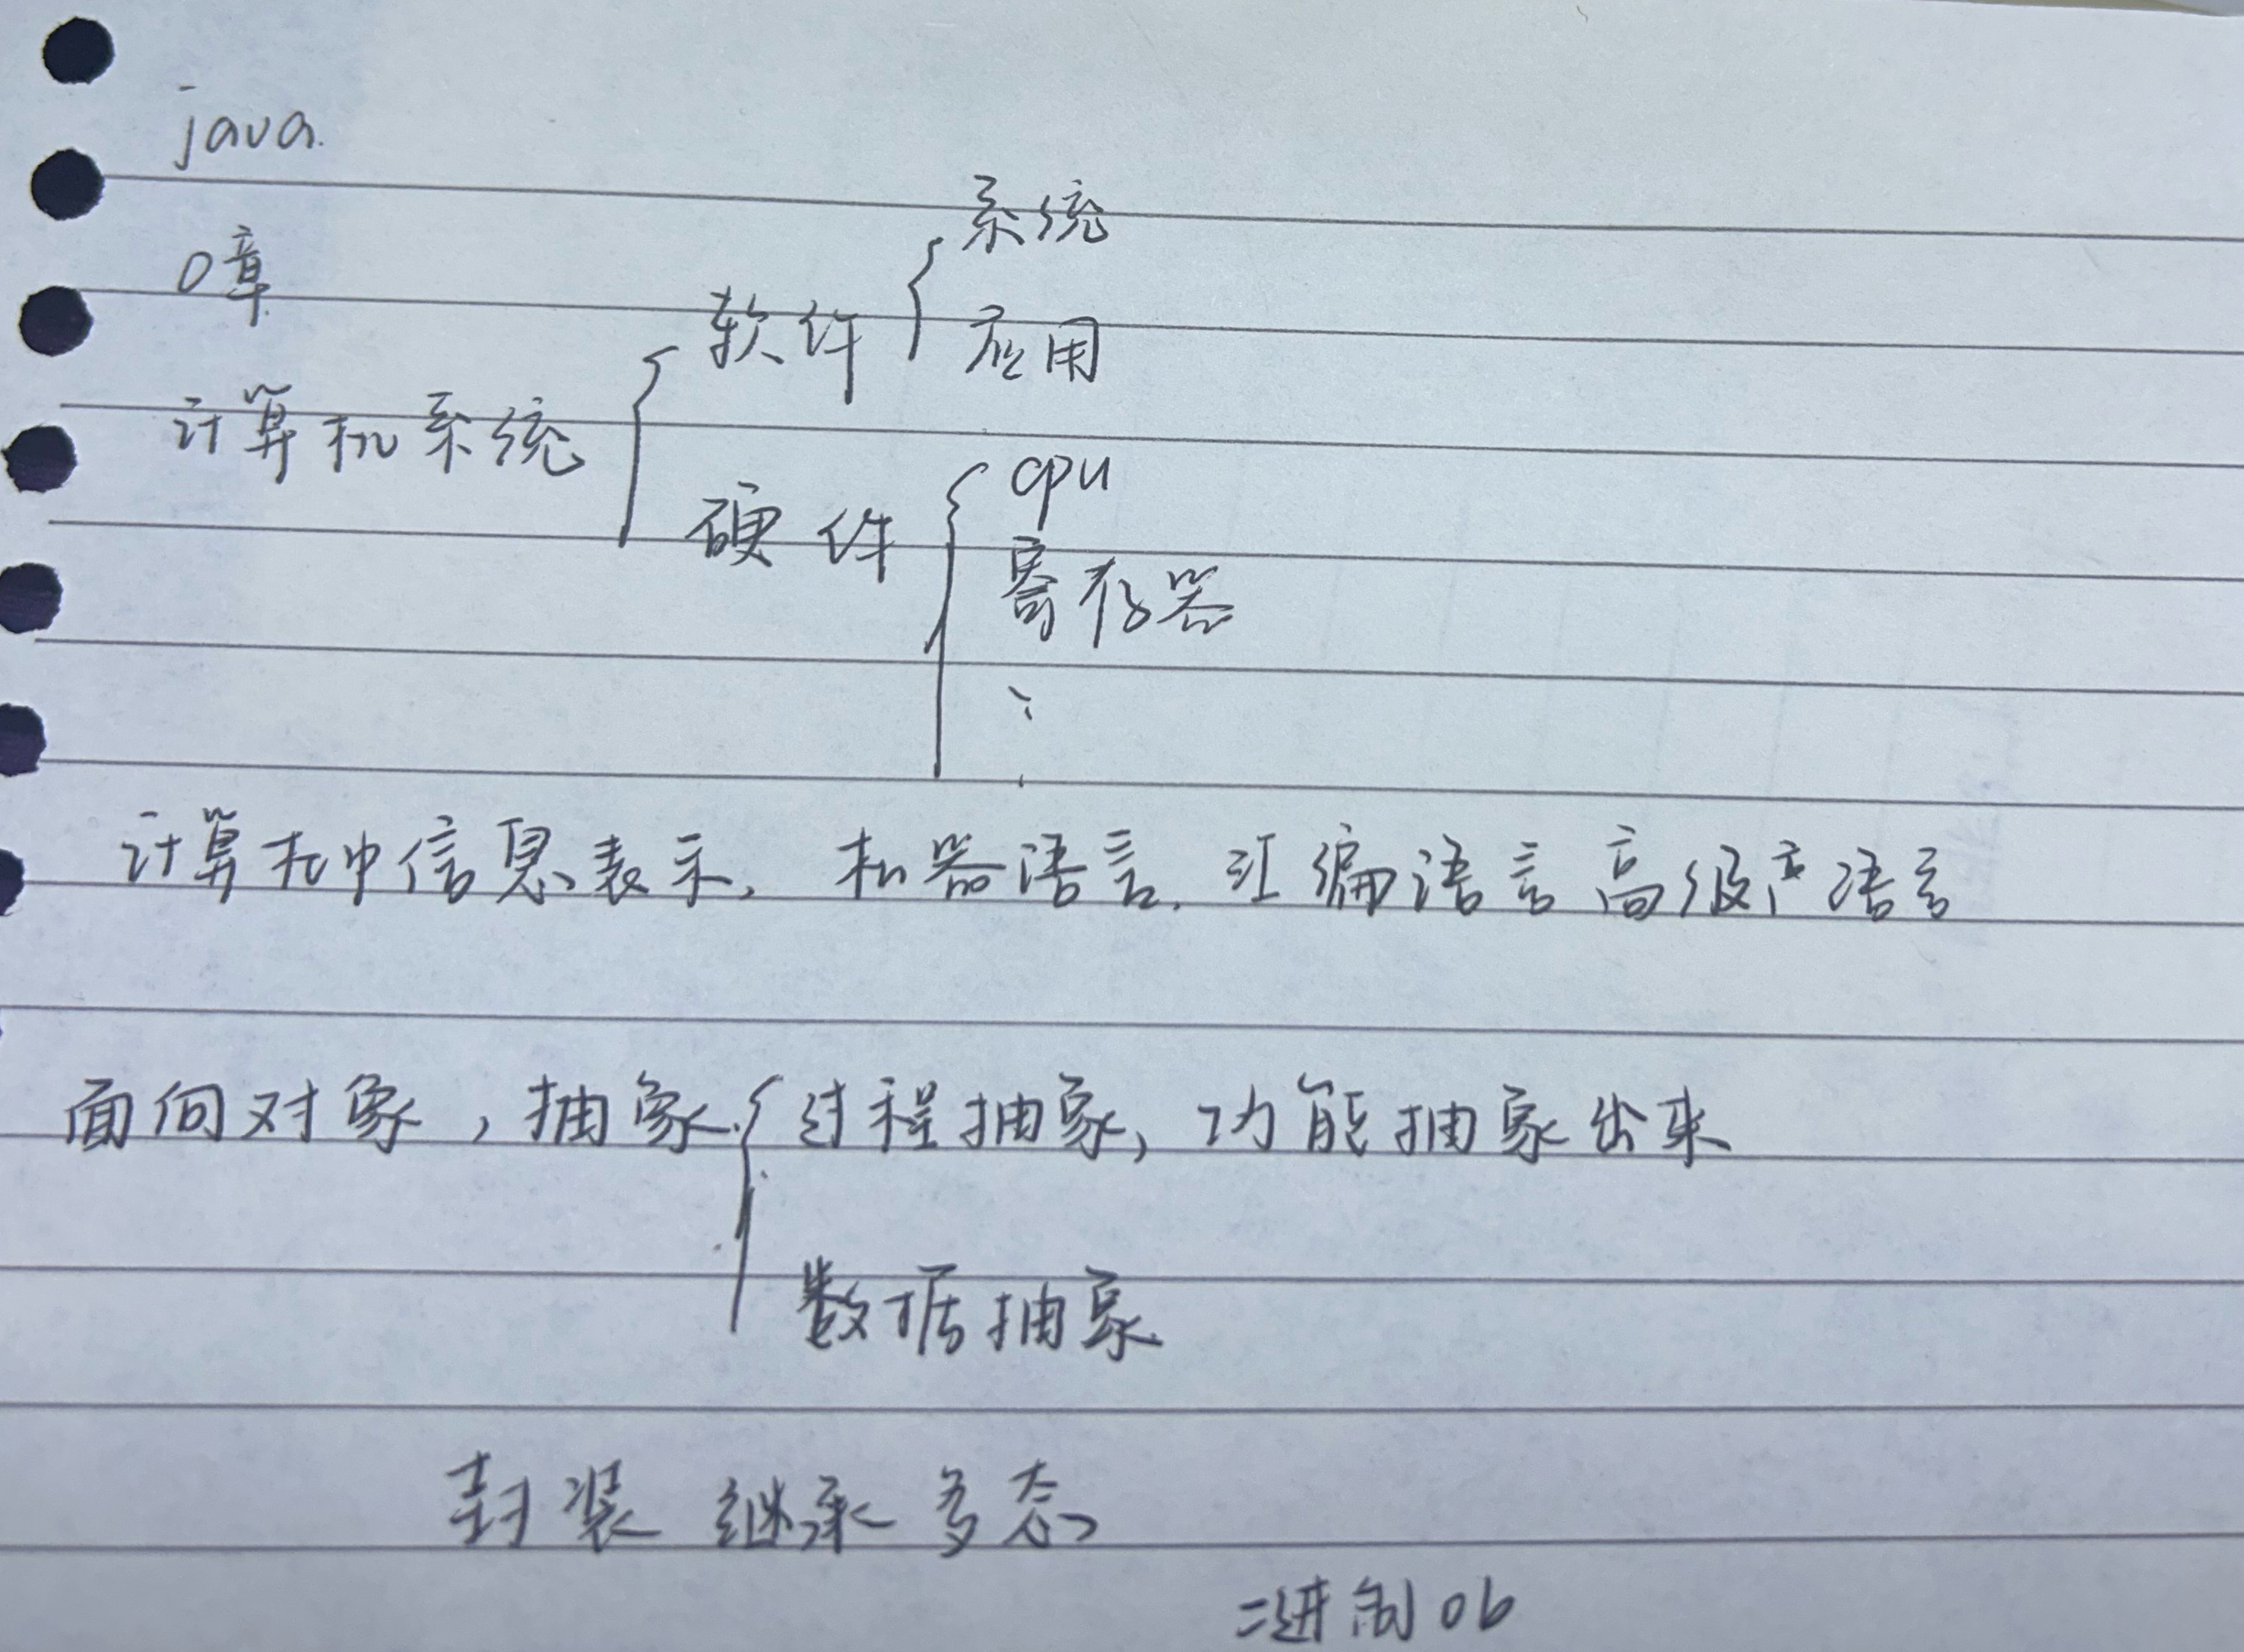 java.
0章
系统
软件
应用
计算机系统
cpu
硬件
寄存器
计算机中信息表示, 机器语言. 汇编语言 高级语言
面向对象, 抽象 过程抽象, 功能抽象出来
数据抽象
封装 继承 多态
二进制 0b